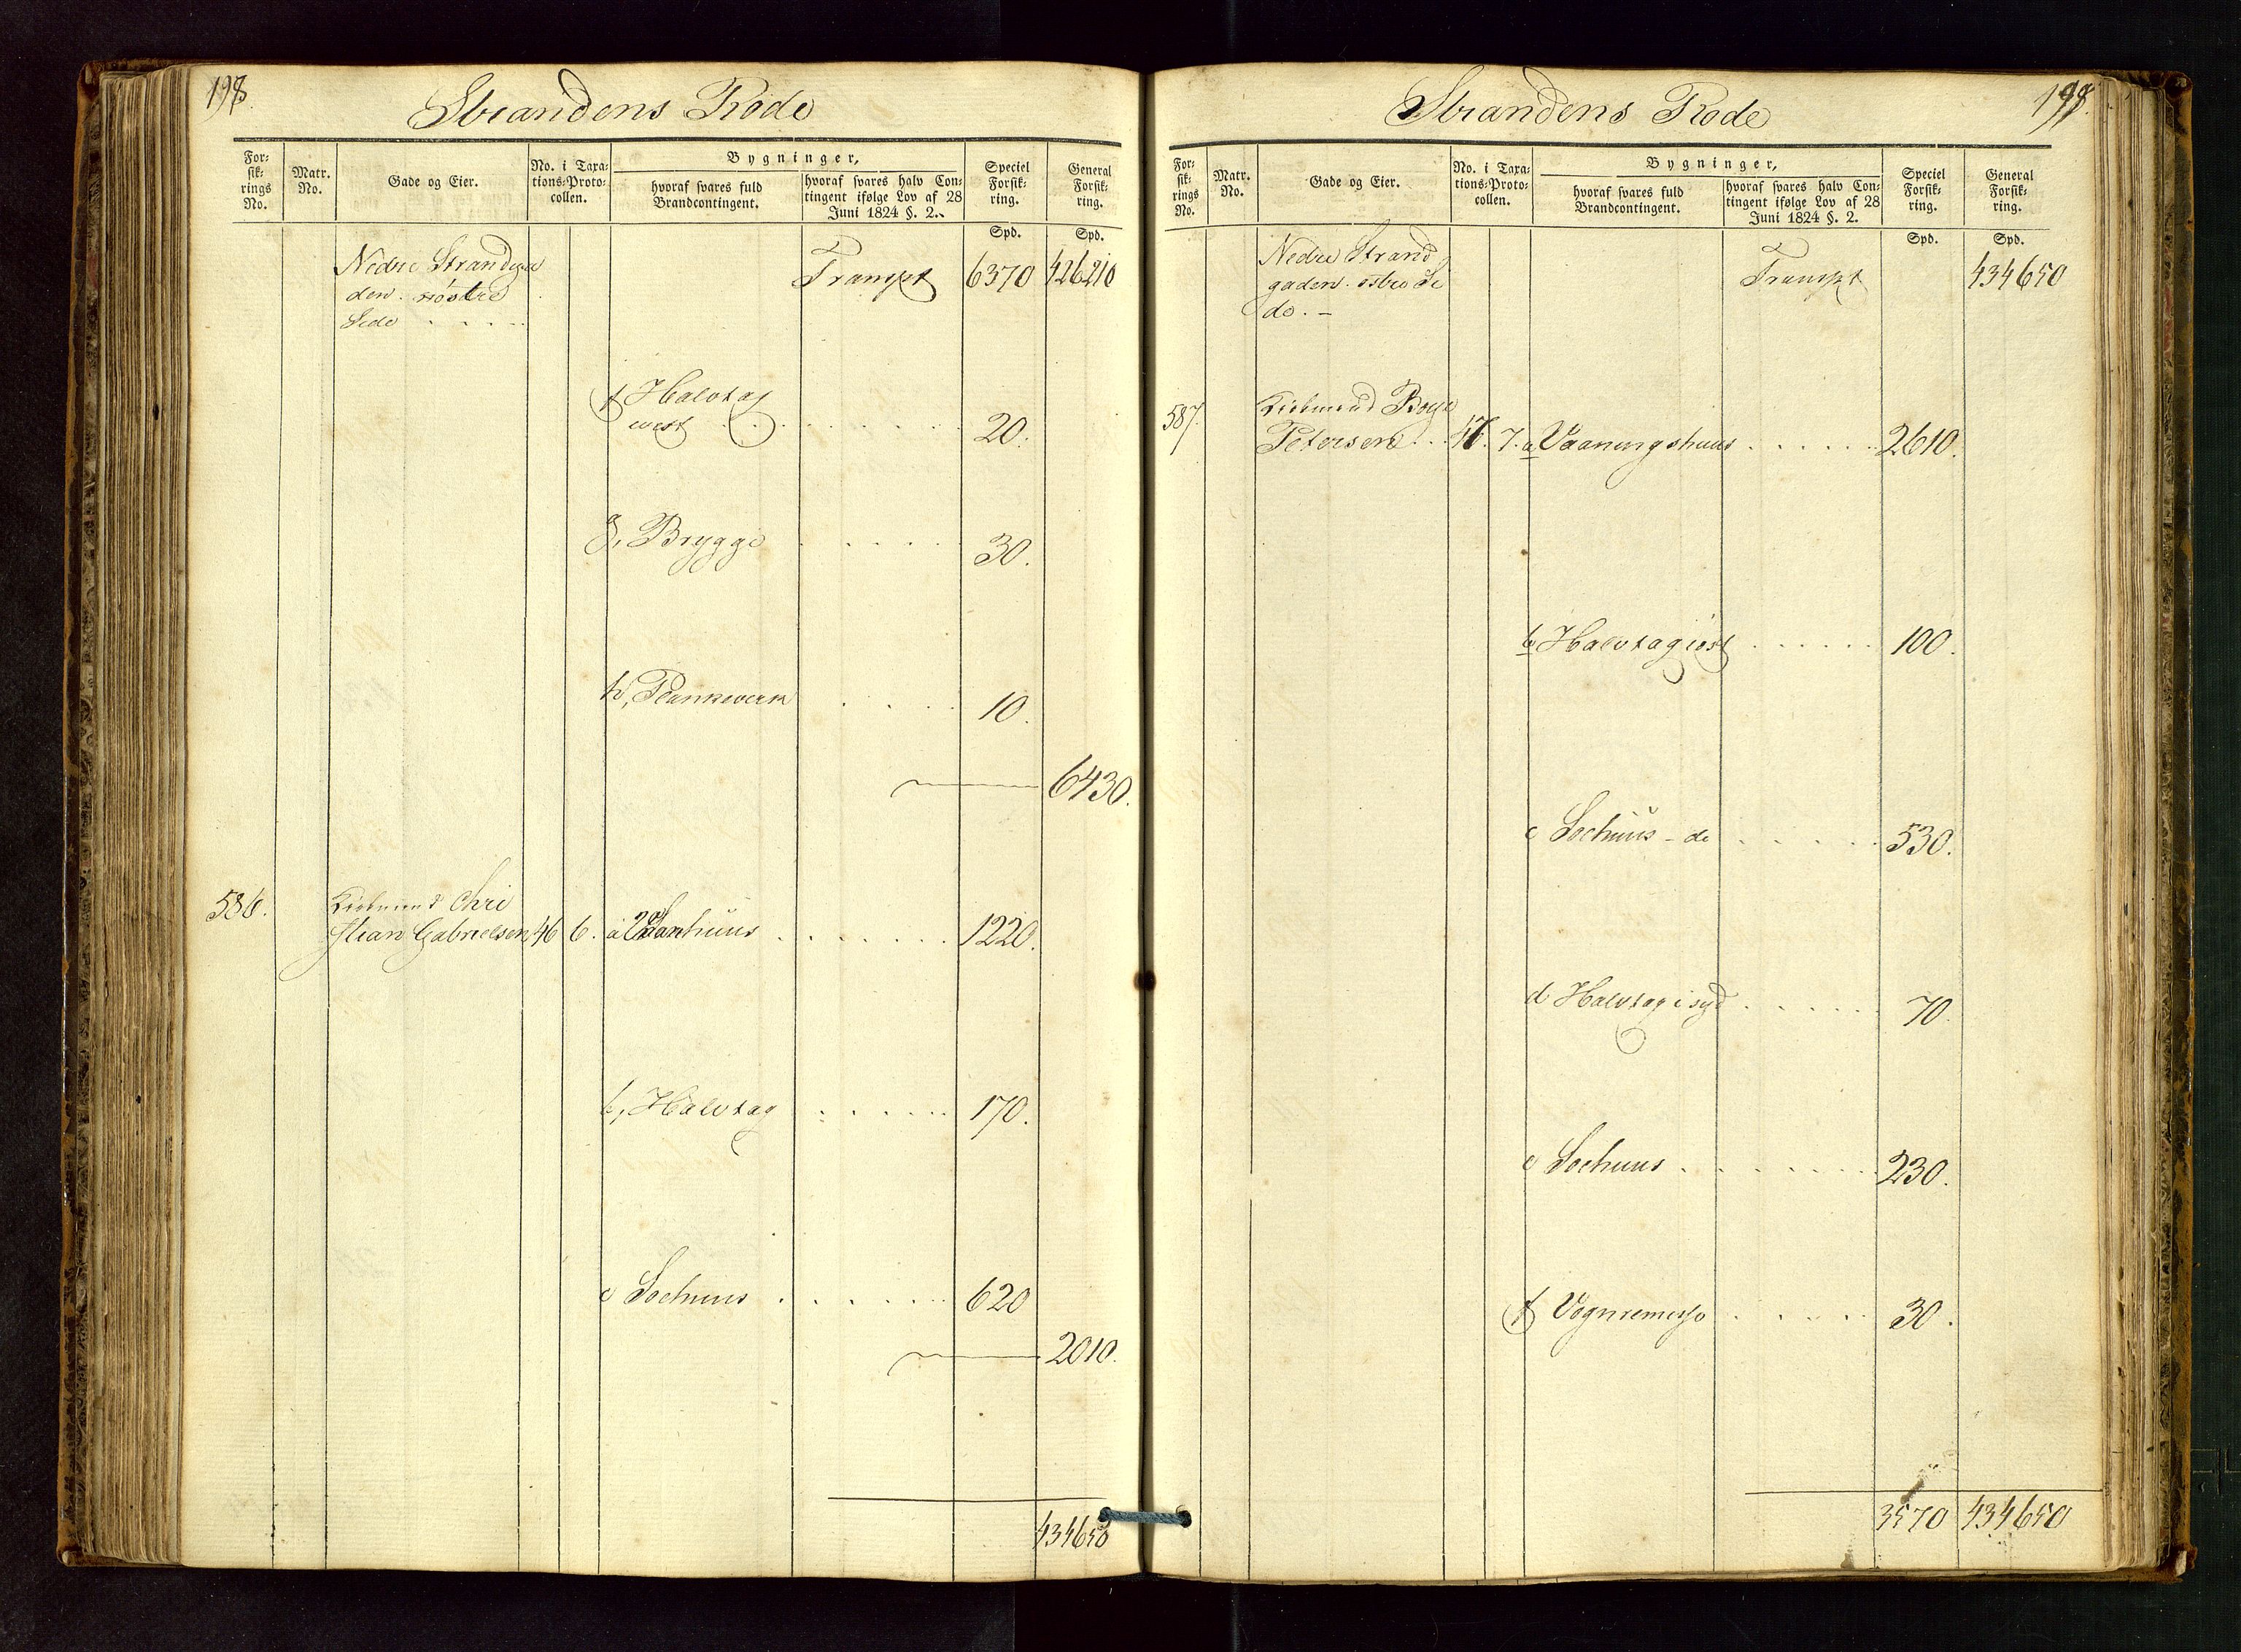 198.
Strandens Rode
For=
sik=
rings
No.
Matr.
No.
Gade og Eier.
No. i Taxa=
tions=Proto=
collen.
Bygninger,
hvoraf svares fuld
Brandcontingent.
hvoraf svares halv Con=
tingent ifølge Lov af 28
Juni 1824 §. 2.
Speciel
Forsik=
ring.
General
Forsik=
ring.
Spd.
Spd.
Nedre Strandga
den
Side . . . .
Transpt 6370 426210
f Halvtag
west . . . . . . 20.
g, Brygge . . . . 30.
h, Plankeverk . . . . 10.
6430.
586. Kiøbmand Chri
stian Gabrielsen 46 6. a huus . . . . . . 1220.
b, Halvtag . . . . . 170.
c Søehuus . . . . . . 620
2010.
434650
Strandens Rode
For=
sik=
rings
No.
Matr.
No.
Gade og Eier.
No. i Taxa=
tions=Proto=
collen.
Bygninger,
hvoraf svares fuld
Brandcontingent.
hvoraf svares halv Con=
tingent ifølge Lov af 28
Juni 1824 §. 2.
Speciel
Forsik=
ring.
General
Forsik=
ring.
Spd.
Spd.
Nedre Strand
gaden østre Si
de. –
Transpt 434650
587. Kiøbmand Boye
Petersen . . 7. a Vaaningshuus . . . . . 2610.
b Halvtag i øst . . . . . 100.
c Søehuus – do . . . . . 530.
d Halvtag i syd . . . . . 70.
e Søehuus . . . . . . 230.
f Vognremesse . . . . . 30.
3570 434650